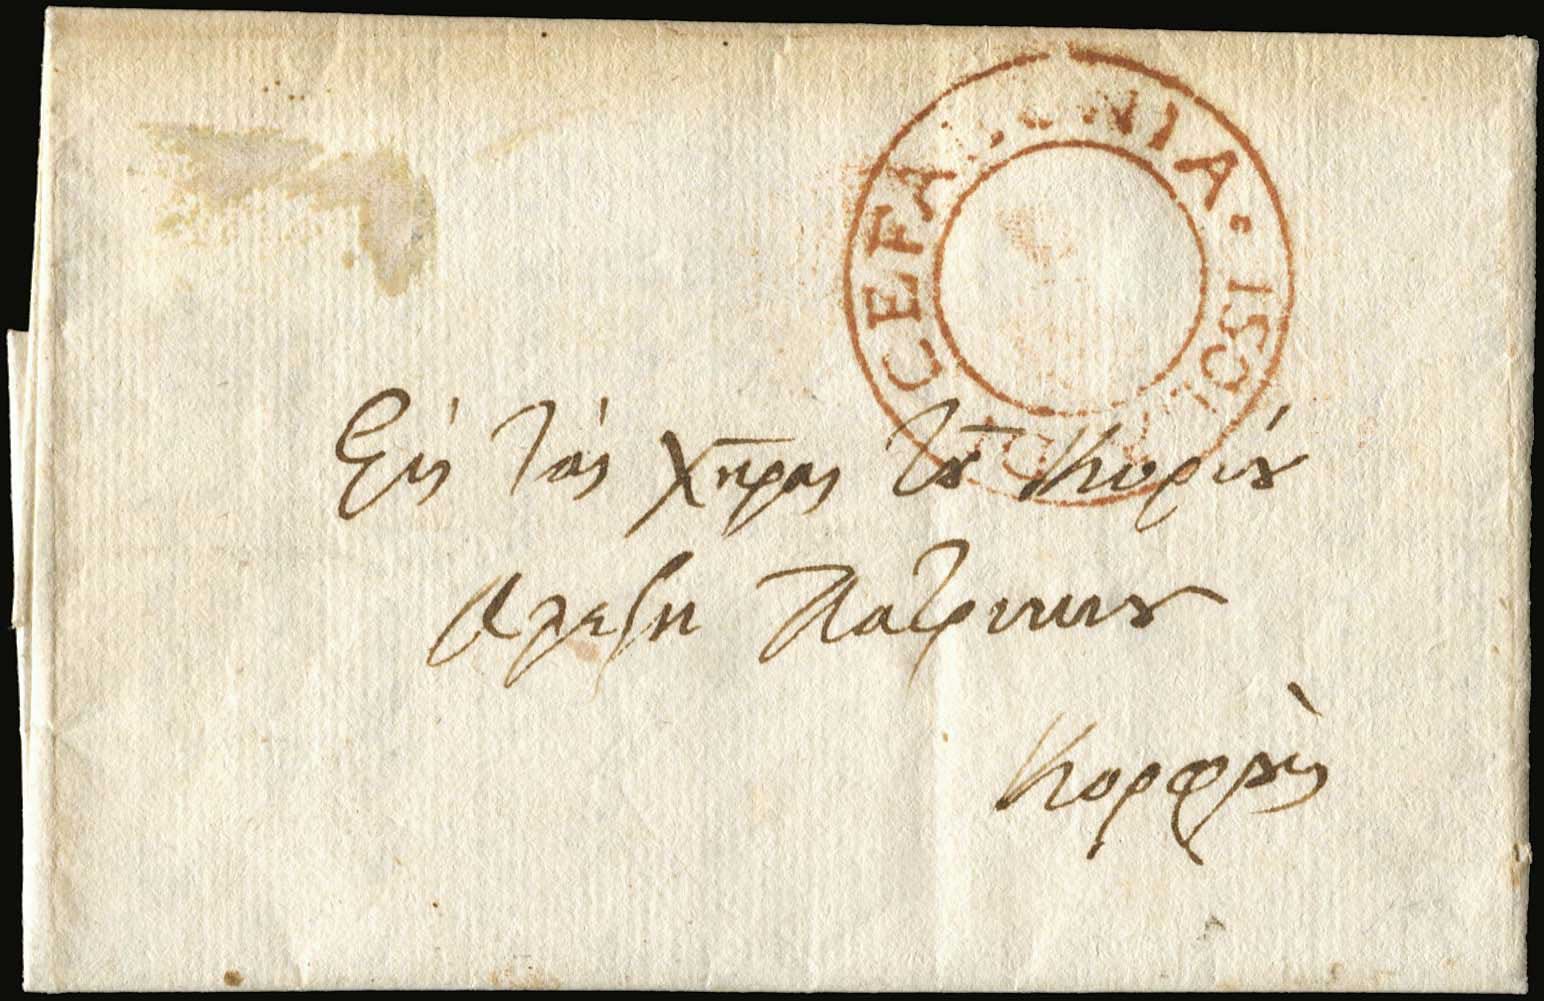 CEFALONIA · ISOLE
Εἰς τὰς χῆρας τοῦ Κυρίου
Αλεξη Πατρικιου
Κορφοὺς